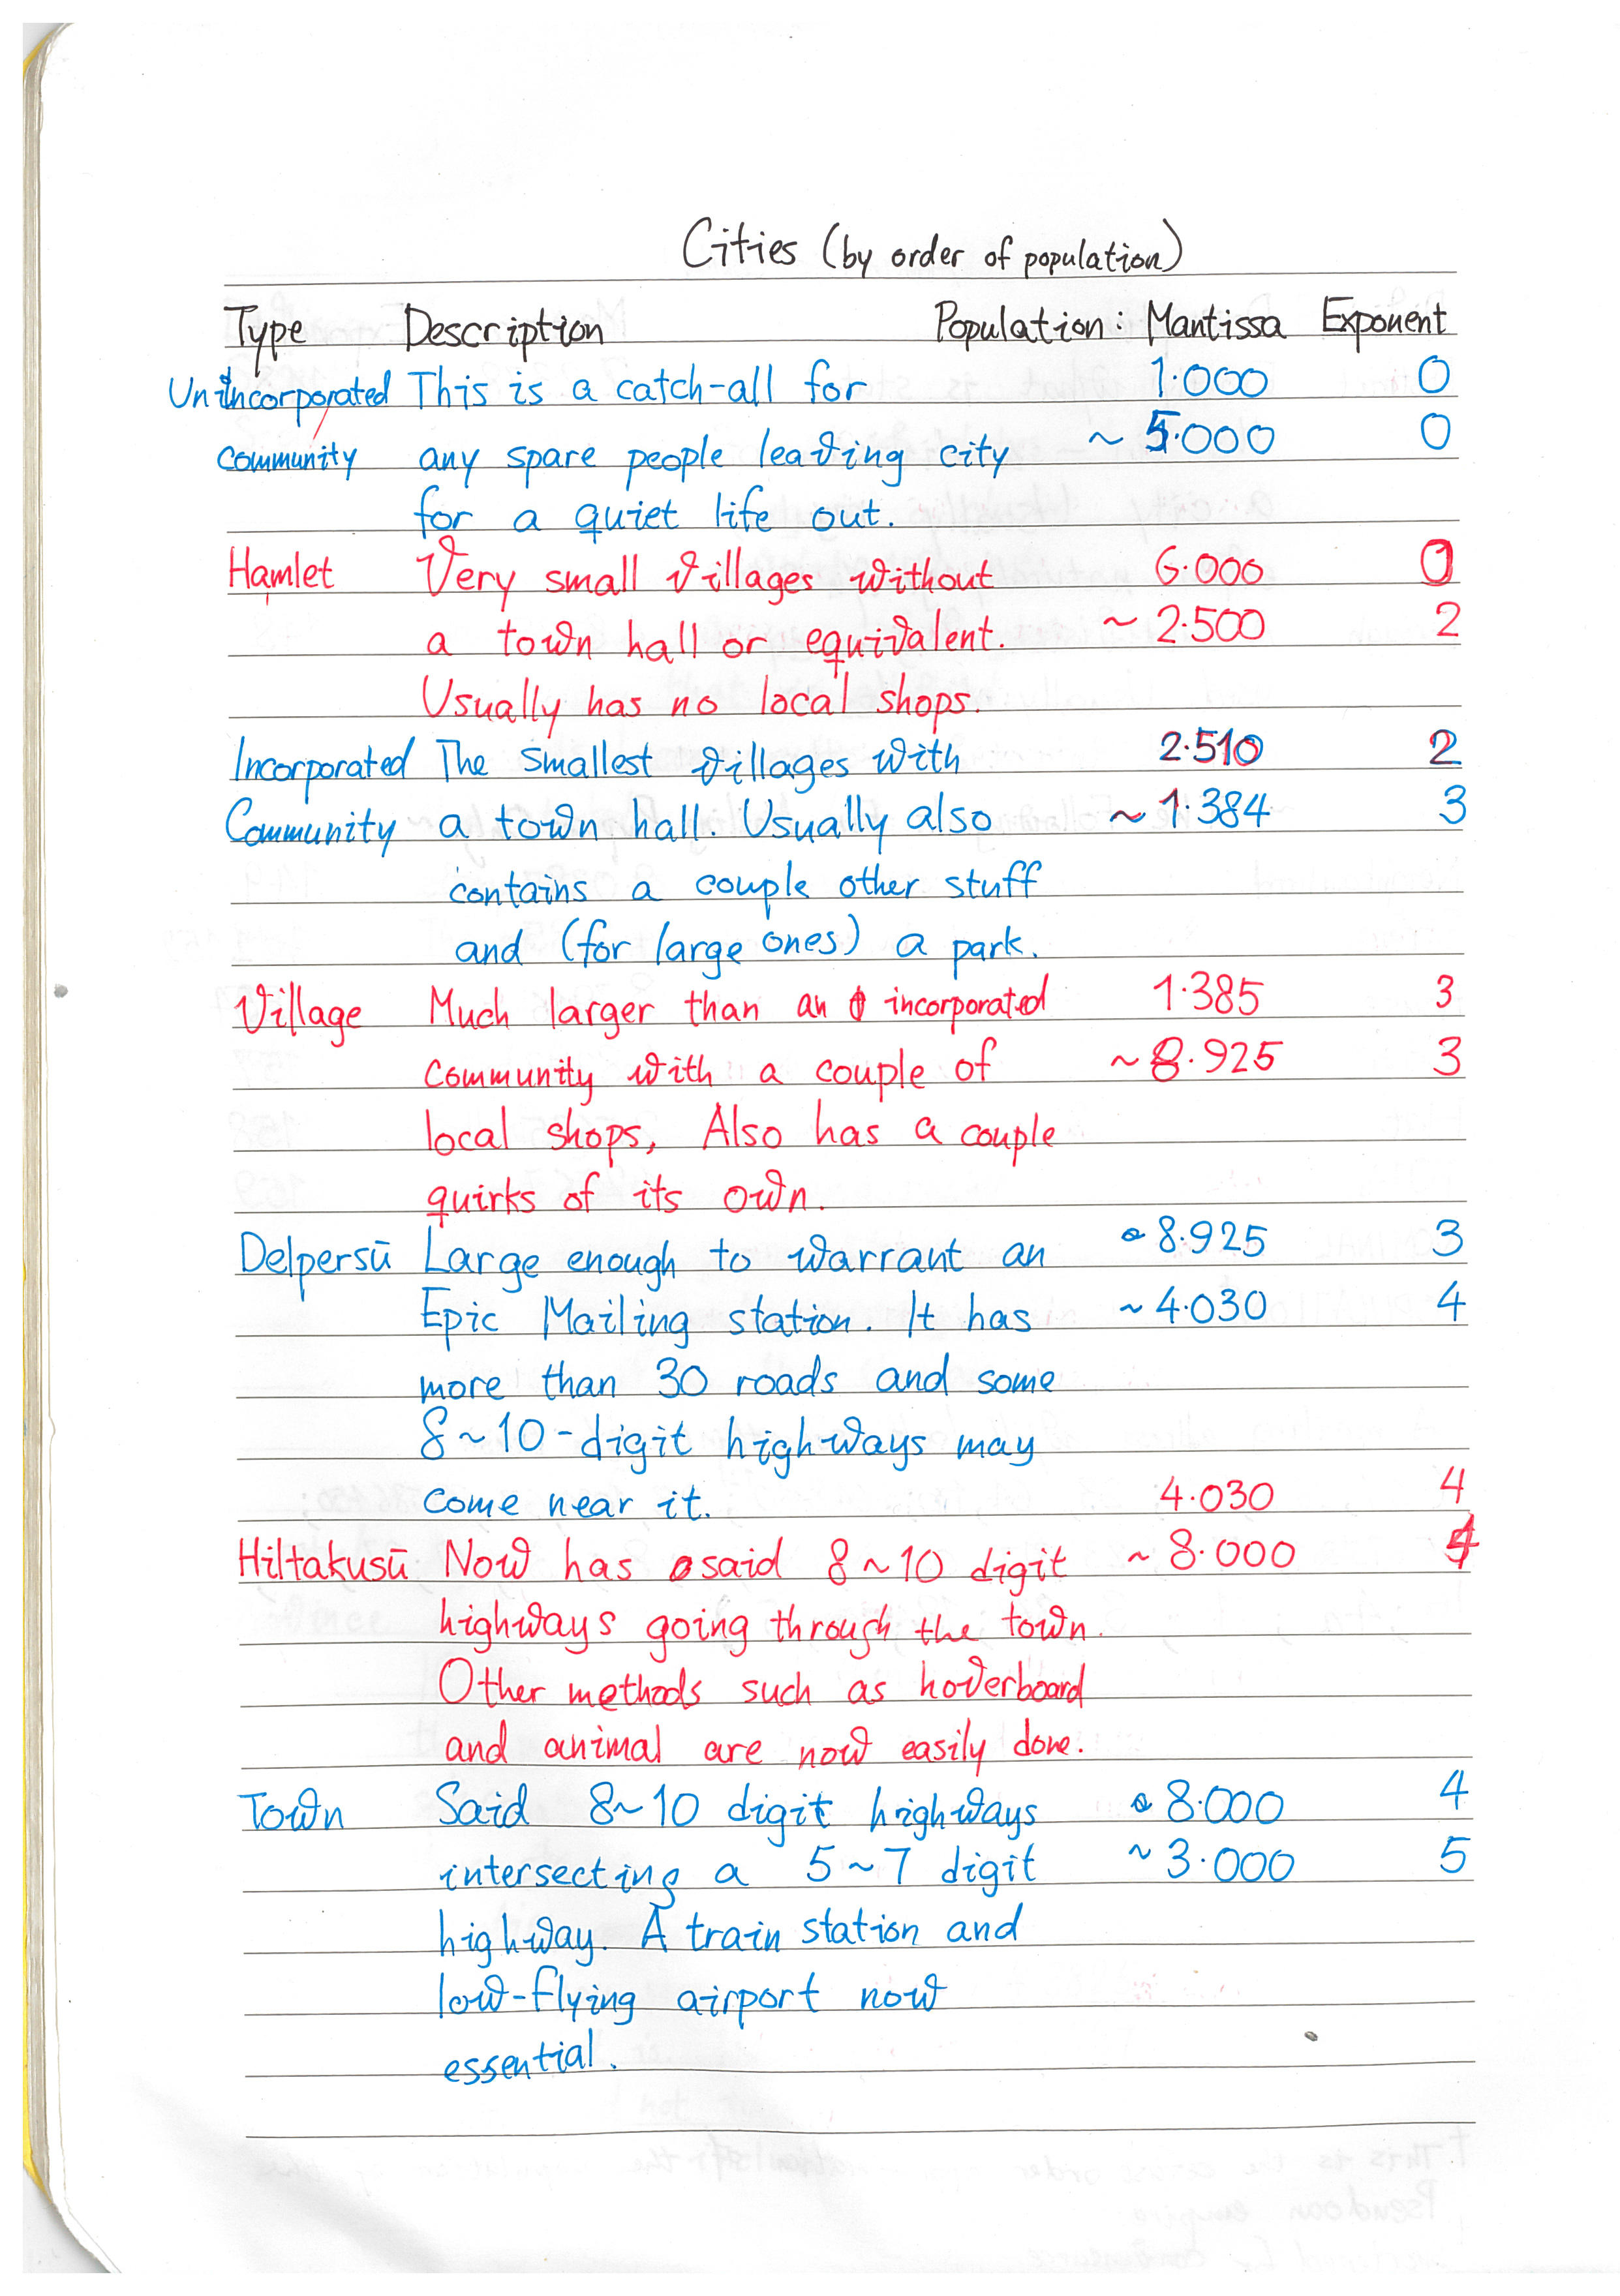 Cities (by order of population)
Type Description Population: Mantissa Exponent
Unincorporated This is a catch-all for 1.000 0
community any spare people leaving city ~ 5.000 0
for a quiet life out.
Hamlet Very small villages without 6.000 0
a town hall or equivalent. ~ 2.500 2
Usually has no local shops.
Incorporated The smallest villages with 2.510 2
Community a town hall. Usually also ~ 1.384 3
contains a couple other stuff
and (for large ones) a park.
Village Much larger than an incorporated 1.385 3
community with a couple of ~ 8.925 3
local shops, Also has a couple
quirks of its own.
Delpersū Large enough to warrant an 8.925 3
Epic Mailing station. It has ~ 4.030 4
more than 30 roads and some
8~10-digit highways may
come near it. 4.030 4
Hiltakusū Now has said 8~10 digit ~ 8.000 4
highways going through the town.
Other methods such as hoverboard
and animal are now easily done.
Town Said 8~10 digit highways 8.000 4
intersecting a 5~7 digit ~ 3.000 5
highway. A train station and
low-flying airport now
essential.